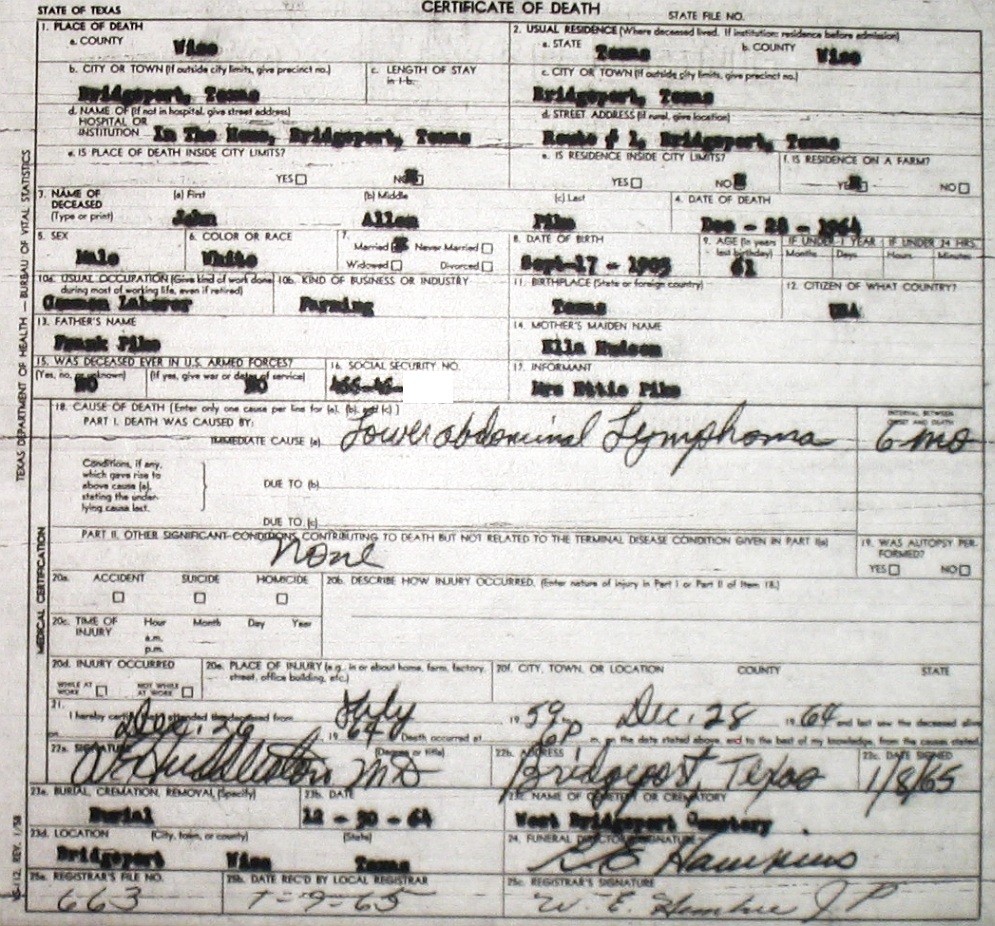 STATE OF TEXAS
CERTIFICATE OF DEATH
STATE FILE NO.
1. PLACE OF DEATH
a. COUNTY
Wise
2. USUAL RESIDENCE (Where deceased lived. If institution: residence before admission)
a. STATE
Texas
b. COUNTY
Wise
b. CITY OR TOWN (If outside city limits, give precinct no.)
Bridgeport, Texas
c. LENGTH OF STAY
in 1-b.
c. CITY OR TOWN (If outside city limits, give precinct no.)
Bridgeport, Texas
d. NAME OF (If not in hospital, give street address)
HOSPITAL OR
INSTITUTION In The Home, Bridgeport, Texas
d. STREET ADDRESS (If rural, give location)
Route # 1, Bridgeport, Texas
e. IS PLACE OF DEATH INSIDE CITY LIMITS?
YES NO
e. IS RESIDENCE INSIDE CITY LIMITS?
YES NO
f. IS RESIDENCE ON A FARM?
YES NO
3. NAME OF
DECEASED
(Type or print)
(a) First
John
(b) Middle
Allen
(c) Last
Pike
4. DATE OF DEATH
Dec - 28 - 1964
5. SEX
Male
6. COLOR OR RACE
White
7.
Married Never Married
Widowed Divorced
8. DATE OF BIRTH
Sept-17 - 1903
9. AGE (In years
last birthday)
61
IF UNDER 1 YEAR
Months Days
IF UNDER 24 HRS.
Hours Minutes
10a. USUAL OCCUPATION (Give kind of work done
during most of working life, even if retired)
Common Laborer
10b. KIND OF BUSINESS OR INDUSTRY
Farming
11. BIRTHPLACE (State or foreign country)
Texas
12. CITIZEN OF WHAT COUNTRY?
USA
13. FATHER'S NAME
Frank Pike
14. MOTHER'S MAIDEN NAME
Ella Hudson
15. WAS DECEASED EVER IN U.S. ARMED FORCES?
(Yes, no, or unknown)
NO
(If yes, give war or dates of service)
NO
16. SOCIAL SECURITY NO.
17. INFORMANT
Mrs Ettie Pike
TEXAS DEPARTMENT OF HEALTH — BUREAU OF VITAL STATISTICS
MEDICAL CERTIFICATION
18. CAUSE OF DEATH (Enter only one cause per line for (a), (b), and (c))
PART I. DEATH WAS CAUSED BY:
IMMEDIATE CAUSE (a) Lower abdominal Lymphoma
INTERVAL BETWEEN
ONSET AND DEATH
6 mo
Conditions, if any,
which gave rise to
above cause (a),
stating the under-
lying cause last.
DUE TO (b)
DUE TO (c)
PART II. OTHER SIGNIFICANT CONDITIONS CONTRIBUTING TO DEATH BUT NOT RELATED TO THE TERMINAL DISEASE CONDITION GIVEN IN PART I(a)
None
19. WAS AUTOPSY PER-
FORMED?
YES NO
20a. ACCIDENT SUICIDE HOMICIDE
20b. DESCRIBE HOW INJURY OCCURRED. (Enter nature of injury in Part I or Part II of Item 18.)
20c. TIME OF
INJURY
Hour Month Day Year
a.m.
p.m.
20d. INJURY OCCURRED
WHILE AT
WORK
NOT WHILE
AT WORK
20e. PLACE OF INJURY (e.g., in or about home, farm, factory,
street, office building, etc.)
20f. CITY, TOWN, OR LOCATION COUNTY STATE
21.
I hereby certify that I attended the deceased from July 19 59 to Dec. 28 19 64 and last saw the deceased alive
on Dec. 26 19 64 Death occurred at 6P m. on the date stated above, and to the best of my knowledge, from the causes stated.
22a. SIGNATURE
(Degree or title)
Huddleston MD
22b. ADDRESS
Bridgeport, Texas
22c. DATE SIGNED
1/8/65
23a. BURIAL, CREMATION, REMOVAL (Specify)
Burial
23b. DATE
12 - 30 - 64
23c. NAME OF CEMETERY OR CREMATORY
West Bridgeport Cemetery
23d. LOCATION (City, town, or county) (State)
Bridgeport Wise Texas
24. FUNERAL DIRECTOR'S SIGNATURE
Hawkins
25a. REGISTRAR'S FILE NO.
663
25b. DATE REC'D BY LOCAL REGISTRAR
1-9-65
25c. REGISTRAR'S SIGNATURE
W. E. J P
VS-112 REV. 1/58